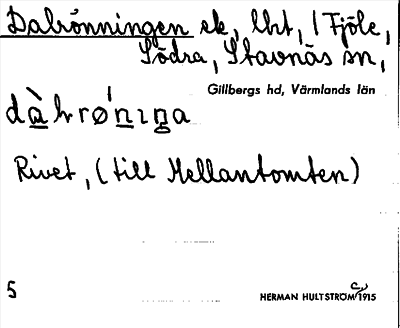 Dalrönningen sk, lht, i Fjöle,
Södra, Stavnäs sn,
Gillbergs hd, Värmlands län
Rivet, (till Mellantomten)
5
HERMAN HULTSTRÖM 1915